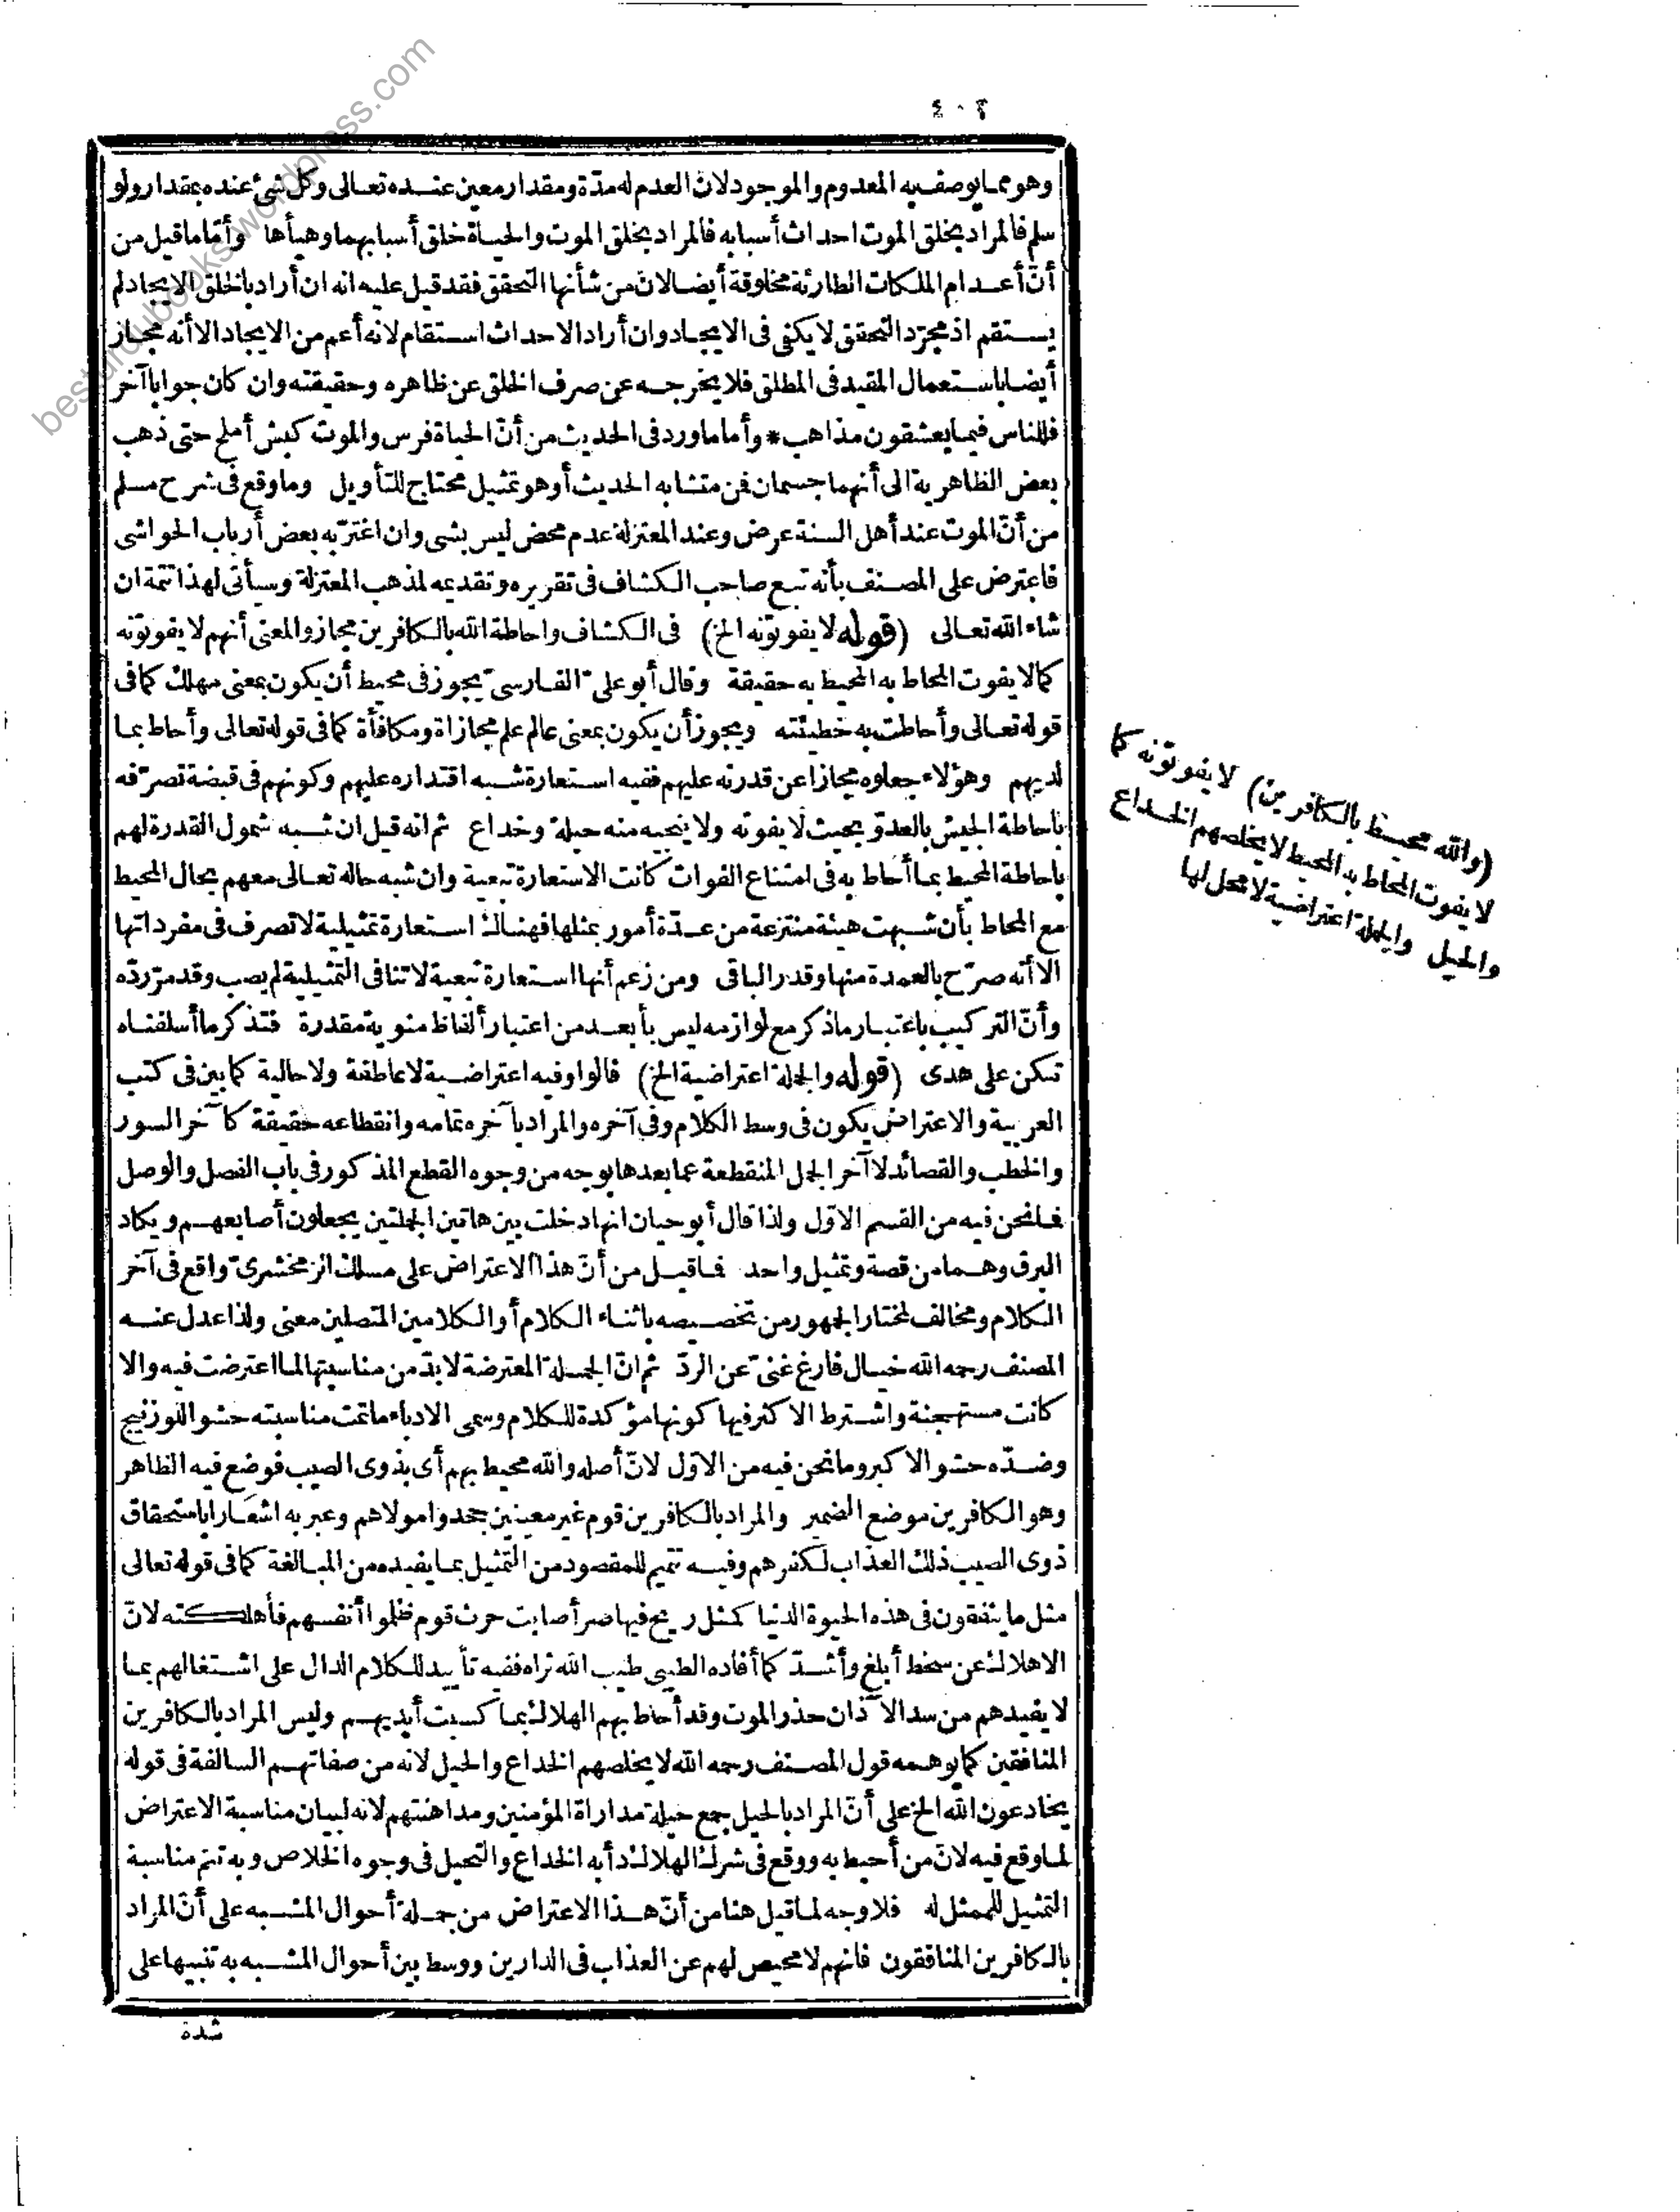 ٤٠٢
وهو مما يوصف به المعدوم والموجود لانّ العدم له مدّة ومقدار معين عنده تعالى وكل شئ عنده بمقدار ولو
سلم فالمراد بخلق الموت احداث أسبابه فالمراد بخلق الموت والحياة خلق أسبابهما وهيأها وأمّا ما قيل من
أنّ أعدام الملكات الطارئة مخلوقة أيضا لانّ من شأنها التحقق فقد قيل عليه انه ان أراد بالخلق الايجاد لم
يستقم اذ مجرّد التحقق لا يكفى فى الايجاد وان أراد الاحداث استقام لانه أعم من الايجاد الا أنه مجاز
أيضا باستعمال المقيد فى المطلق فلا يخرجه عن صرف الخلق عن ظاهره وحقيقته وان كان جوابا آخر
فللناس فيما يعشقون مذاهب * وأما ما ورد فى الحديث من أنّ الحياة فرس والموت كبش أملح حتى ذهب
بعض الظاهرية الى أنهما جسمان فمن متشابه الحديث أو هو تمثيل محتاج للتأويل وما وقع فى شرح مسلم
من أنّ الموت عند أهل السنة عرض وعند المعتزلة عدم محض ليس بشى وان اغترّ به بعض أرباب الحواشى
فاعترض على المصنف بأنه تبع صاحب الكشاف فى تقريره وتقديمه لمذهب المعتزلة وسيأتى لهذا تتمة ان
شاء الله تعالى (قوله لا يفوتونه الخ) فى الكشاف واحاطة الله بالكافرين مجاز والمعنى أنهم لا يفوتونه
كما لا يفوت المحاط به المحيط به حقيقة وقال أبو علىّ الفارسىّ يجوز فى محيط أن يكون بمعنى مهلك كما فى
قوله تعالى وأحاطت به خطيئته ويجوز أن يكون بمعنى عالم علم مجازاة ومكافأة كما فى قوله تعالى وأحاط بما
لديهم وهؤلاء جعلوه مجازا عن قدرته عليهم ففيه استعارة شبه اقتداره عليهم وكونهم فى قبضة تصرّفه
باحاطة الجيش بالعدوّ بحيث لا يفوته ولا ينجيه منه حيلة وخداع ثم انه قيل ان شبه شمول القدرة لهم
باحاطة المحيط بما أحاط به فى امتناع الفوات كانت الاستعارة تبعية وان شبه حاله تعالى معهم بحال المحيط
مع المحاط بأن شبهت هيئة منتزعة من عدّة أمور بمثلها فهنالك استعارة تمثيلية لا تصرف فى مفرداتها
الا أنه صرّح بالعمدة منها وقدر الباقى ومن زعم أنها استعارة تبعية لا تنافى التمثيلية لم يصب وقد مرّ ردّه
وأنّ التركيب باعتبار ما ذكر مع لوازمه ليس بأبعد من اعتبار ألفاظ منوية مقدرة فتذكر ما أسلفناه
تكن على هدى (قوله والجملة اعتراضية الخ) فالواو فيه اعتراضية لا عاطفة ولا حالية كما بين فى كتب
العربية والاعتراض يكون فى وسط الكلام وفى آخره والمراد بآخره تمامه وانقطاعه حقيقة كآخر السور
والخطب والقصائد لا آخر الجمل المنقطعة عما بعدها بوجه من وجوه القطع المذكور فى باب الفصل والوصل
فما نحن فيه من القسم الاوّل ولذا قال أبو حيان انها دخلت بين هاتين الجملتين يجعلون أصابعهم ويكاد
البرق وهما من قصة وتمثيل واحد فما قيل من أنّ هذا الاعتراض على مسلك الزمخشرىّ واقع فى آخر
الكلام ومخالف لمختار الجمهور من تخصيصه باثناء الكلام أو الكلامين المتصلين معنى ولذا عدل عنه
المصنف رحمه الله خيال فارغ غنىّ عن الردّ ثم انّ الجملة المعترضة لا بدّ من مناسبتها لما اعترضت فيه والا
كانت مستهجنة واشترط الاكثر فيها كونها مؤكدة للكلام وسمى الادباء ما تمت مناسبته حشو اللوزنيج
وضدّه حشو الاكر وما نحن فيه من الاوّل لانّ أصله والله محيط بهم أى بذوى الصيب فوضع فيه الظاهر
وهو الكافرين موضع الضمير والمراد بالكافرين قوم غير معينين جحدوا مولاهم وعبر به اشعارا باستحقاق
ذوى الصيب ذلك العذاب لكفرهم وفيه تتميم للمقصود من التمثيل بما يفيده من المبالغة كما فى قوله تعالى
مثل ما ينفقون فى هذه الحيوة الدنيا كمثل ريح فيها صر أصابت حرث قوم ظلموا أنفسهم فأهلكته لانّ
الاهلاك عن سخط أبلغ وأشدّ كما أفاده الطيبى طيب الله ثراه ففيه تأييد للكلام الدال على اشتغالهم بما
لا يفيدهم من سد الآذان حذر الموت وقد أحاط بهم الهلاك بما كسبت أيديهم وليس المراد بالكافرين
المنافقين كما يوهمه قول المصنف رحمه الله لا يخلصهم الخداع والحيل لانه من صفاتهم السالفة فى قوله
يخادعون الله الخ على أنّ المراد بالحيل جمع حيلة مداراة المؤمنين ومداهنتهم لانه لبيان مناسبة الاعتراض
لما وقع فيه لانّ من أحيط به ووقع فى شرك الهلاك دأبه الخداع والتحيل فى وجوه الخلاص وبه تتم مناسبة
التمثيل للممثل له فلا وجه لما قيل هنا من أنّ هذا الاعتراض من جملة أحوال المشبه على أنّ المراد
بالكافرين المنافقون فانهم لا محيص لهم عن العذاب فى الدارين ووسط بين أحوال المشبه به تنبيها على
شدة
(والله محيط بالكافرين) لا يفوتونه كما
لا يفوت المحاط به المحيط لا يخلصهم الخداع
والحيل والجملة اعتراضية لا محل لها
besturdubooks.wordpress.com